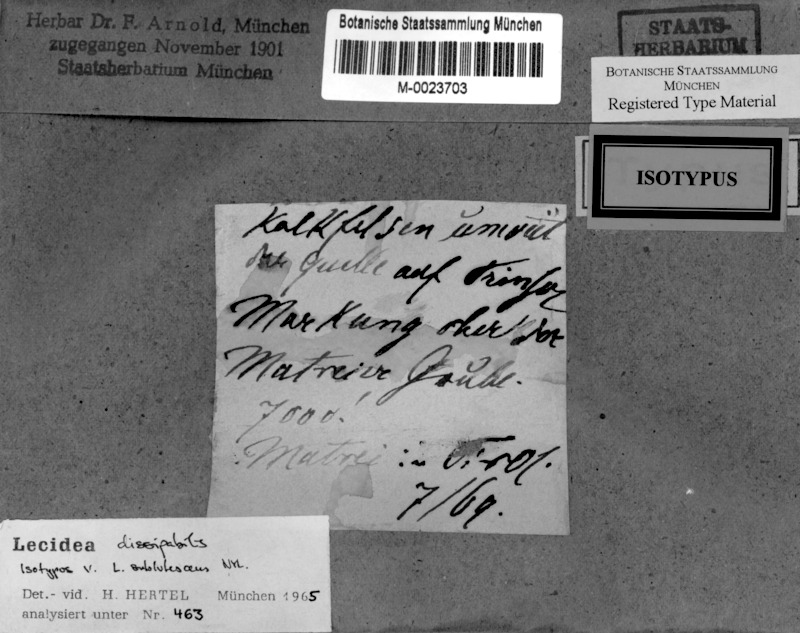 Herbar Dr. F. Arnold, München
zugegangen November 1901
Staatsherbarium München
Botanische Staatssammlung München
M-0023703
STAATS-
HERBARIUM
BOTANISCHE STAATSSAMMLUNG
MÜNCHEN
Registered Type Material
ISOTYPUS
Kalkfelsen unweit
der Quelle auf Trinser
Markung ober der
Matreier Grube.
7000'.
Matrei in Tirol.
7/69.
Lecidea dissipabilis
Isotypus v. L. sublutescens Nyl.
Det.- vid. H. HERTEL München 1965
analysiert unter Nr. 463